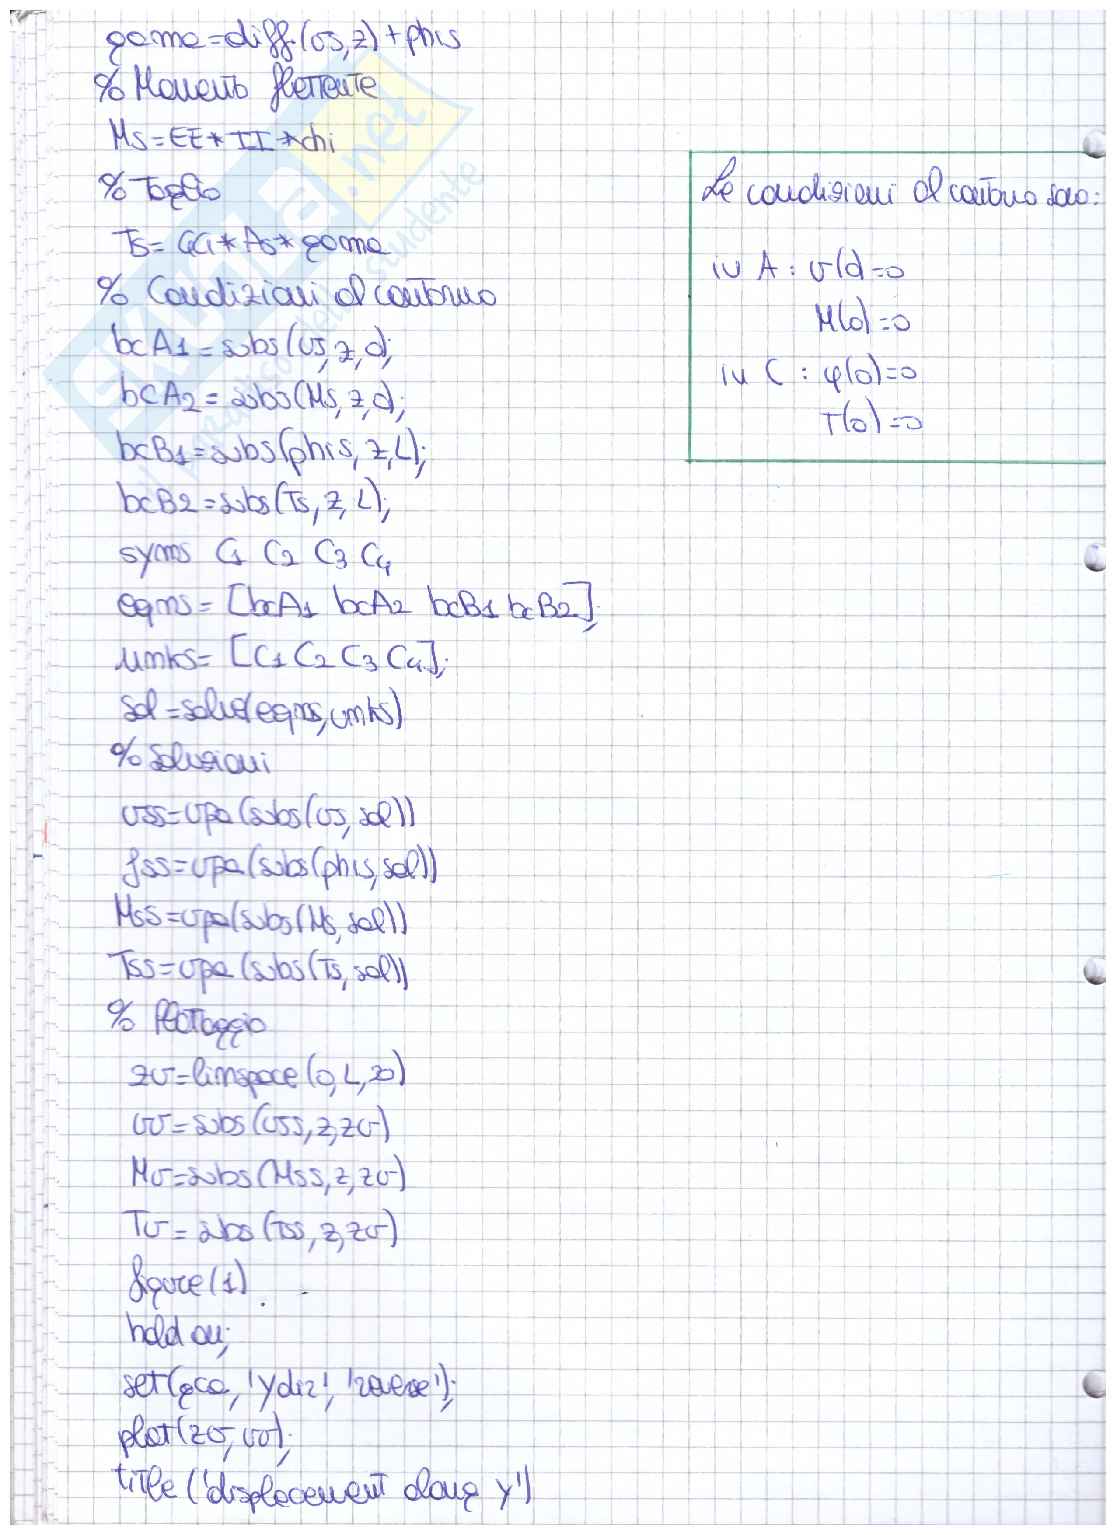 gama=diff(vs,z)+phis
% Momento flettente
Ms=EE*II*chi
% Taglio
Ts=GG*As*gama
% Condizioni al contorno
bcA1=subs(vs,z,0);
bcA2=subs(Ms,z,0);
bcB1=subs(phis,z,L);
bcB2=subs(Ts,z,L);
syms C1 C2 C3 C4
eqns=[bcA1 bcA2 bcB1 bcB2];
unks=[C1 C2 C3 C4];
sol=solve(eqns,unks)
% Soluzioni
vss=vpa(subs(vs,sol))
fss=vpa(subs(phis,sol))
Mss=vpa(subs(Ms,sol))
Tss=vpa(subs(Ts,sol))
% Plottaggio
zv=linspace(0,L,20)
vv=subs(vss,z,zv)
Mv=subs(Mss,z,zv)
Tv=subs(Tss,z,zv)
figure(1)
hold on;
set(gca,'ydir','reverse');
plot(zv,vv);
title('displacement along y')
Le condizioni al contorno sono:
in A: v(0)=0
M(0)=0
in C: φ(0)=0
T(0)=0
SKUOLA.net